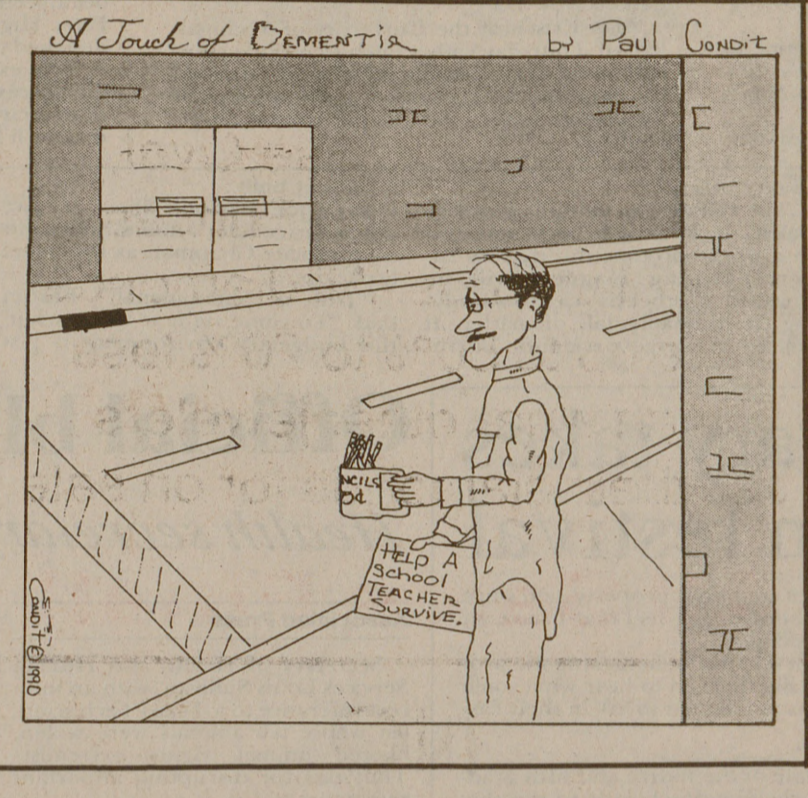 A Touch of DEMENTIA
by Paul CONDIT
NCILS
5¢
HELP A
School
TEACHER
SURVIVE.
CONDIT © 1990